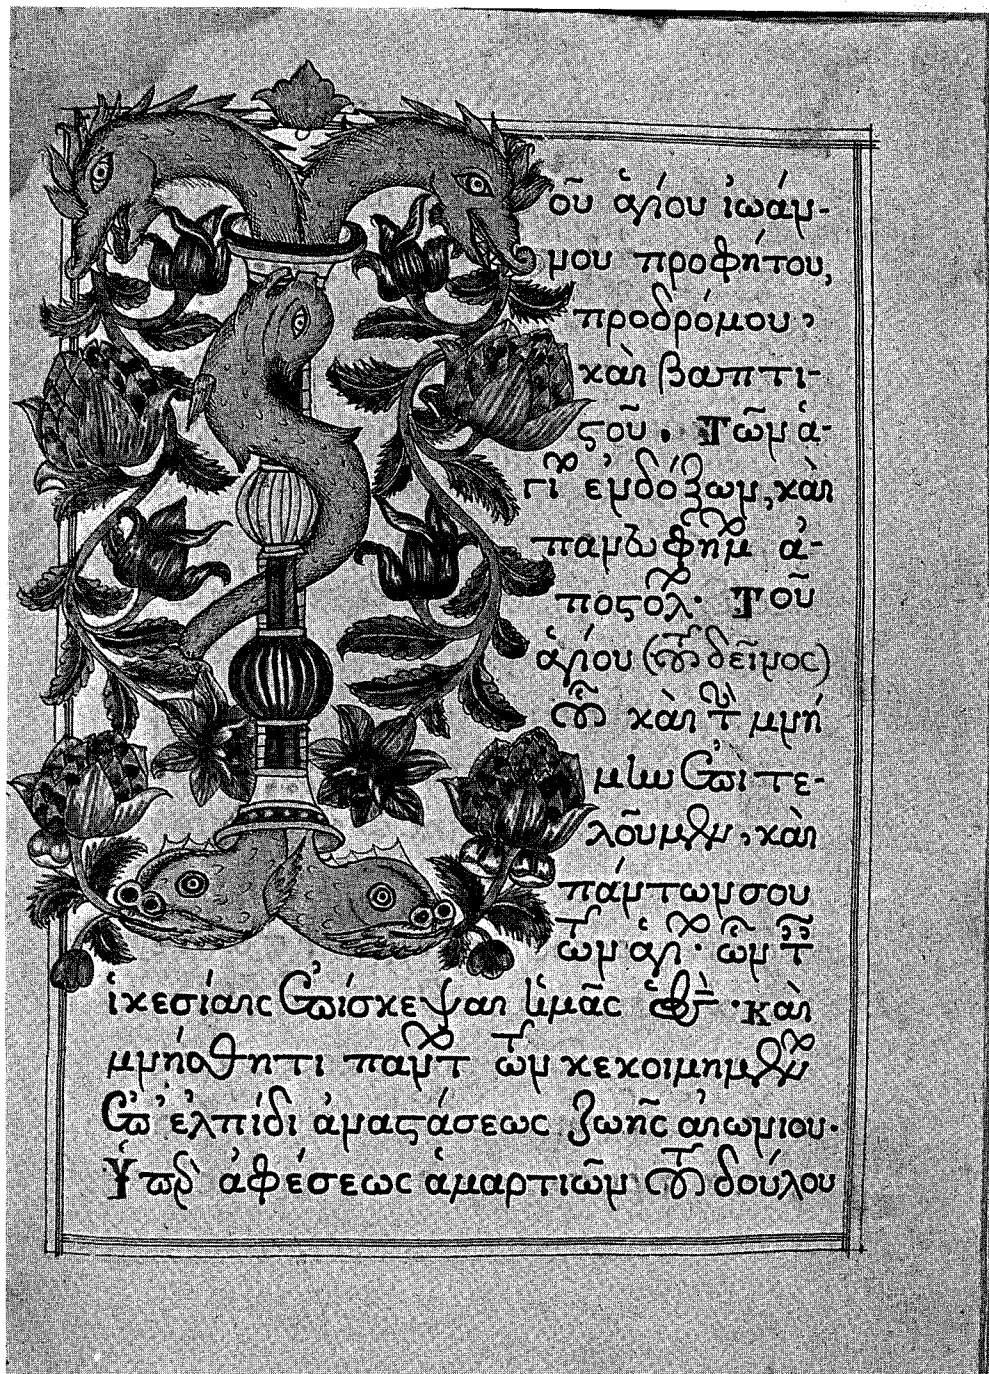 Τοῦ ἁγίου ἰωάν-
νου προφήτου,
προδρόμου,
καὶ βαπτι-
ϛοῦ. Τῶν ἁ-
γί ἐνδόξων, καὶ
πανευφήμ ἀ-
ποϛόλ. Τοῦ
ἁγίου (τοῦ δεῖνος)
οὗ καὶ τ μνή
μην ἐπιτε-
λοῦμεν, καὶ
πάντων σου
τῶν ἁγί. ὧν τ
ἱκεσίαις ἐπίσκεψαι ἡμᾶς ὁ θς. καὶ
μνήσθητι πάντ τῶν κεκοιμημέν
ἐπ' ἐλπίδι ἀναϛάσεως ζωῆς αἰωνίου.
Ὑπὲρ ἀφέσεως ἁμαρτιῶν τοῦ δούλου